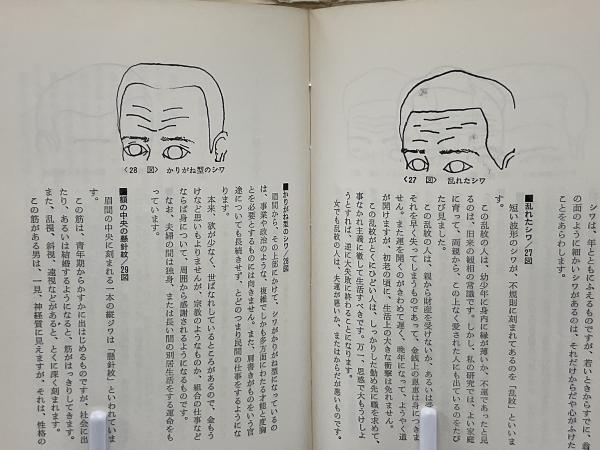 シワは、年とともにふえるものですが、若いときからすでに、
の面のように細かいシワがあるのは、それだけからだや心がよけた
ことをあらわします。
■乱れたシワ／27図
短い波形のシワが、不規則に刻まれてあるのを「乱紋」といいま
この乱紋の人は、幼少年に身内に縁が薄いか、不運であったと見
るのは、旧来の観相の常識です。しかし、私の研究では、よい家庭
に育って、両親から、この上なく愛された人にも出ているのをたび
たび見ました。
この乱紋の人は、親から財産を受けないか、あるいは受
それを早く失ってしまうものであって、金銭上の恩恵は身につきま
せん。また運を開くのがきわめて遅く、晩年になって、ようやく道
が開けますが、初老の頃に、生活上の大きな衝撃は免れません。
この乱紋がとくにひどい人は、しっかりした勤め先に職を求めて、
事なかれ主義に徹して生活すべきです。万一、思惑で大もうけしよ
うとすれば、逆に大失敗に終わることになります。
女でも乱紋の人は、夫運が悪いか、またはからだが悪いものです。
〈27　図〉　乱れたシワ
■かりがね型のシワ／28図
眉間から、その上部にかけて、シワがかりがね型になっているの
は、事業や政治のような、複雑でしかも多方面にわたる才能と度胸
とを必要とするものには向きません。また、肩書きがものをいう官
途についても長続きせず、とどのつまり民間の仕事をするようにな
ります。
本来、欲が少なく、世ばなれしているところがあるので、金もう
けなど思いもよりませんが、宗教のようなものか、組合の仕事など
ならば身について、周囲から感謝されるようになるものです。
なお、夫婦の間は独身、または長い間の別居生活をする運命をも
っています。
〈28　図〉　かりがね型のシワ
■額の中央の懸針紋／29図
眉間の中央に刻まれる一本の縦ジワは「懸針紋」といわれていま
す。
この筋は、青年期からかすかに出はじめるものですが、社会に出
たり、あるいは結婚するようになると、筋がはっきりしてきます。
また、乱視、斜視、遠視などがあると、とくに深く刻まれます。
この筋がある男は、一見、神経質に見えますが、それは、性格の